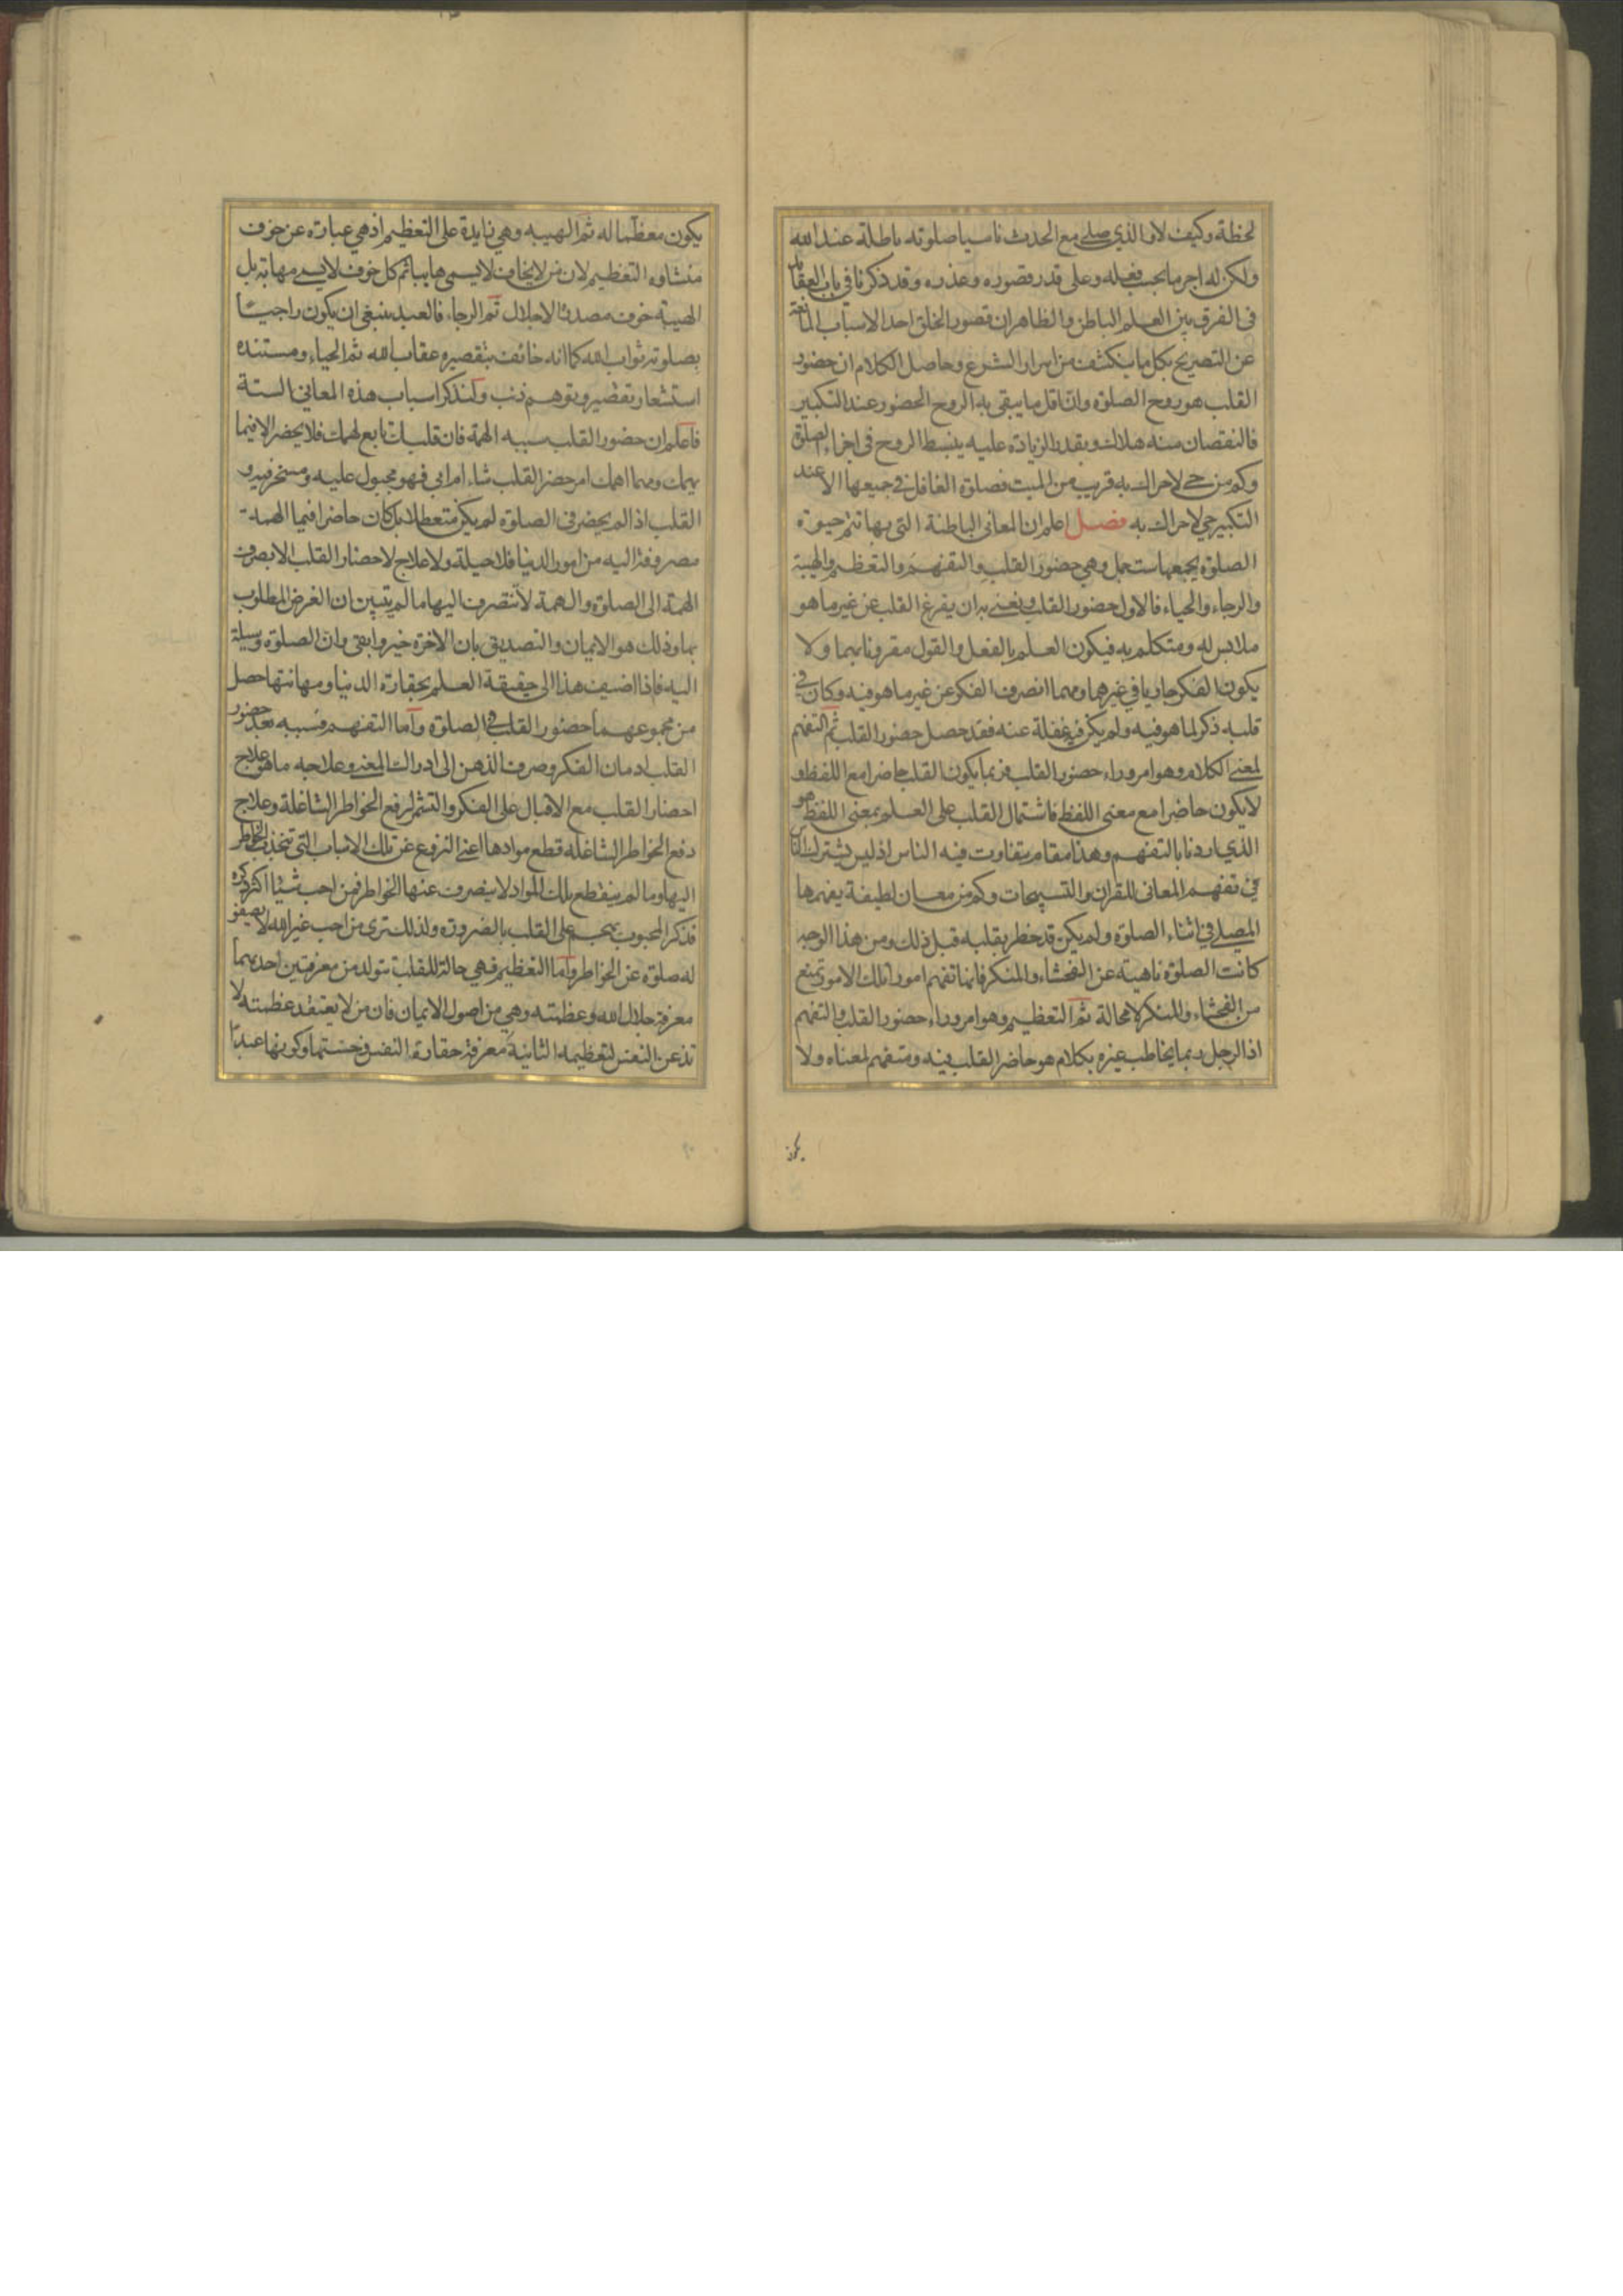 لحظة وكيف لا والذي صلى مع الحدث ناسيا صلوته باطلة عند الله
ولكن له اجر ما بحسب فعله وعلى قدر قصوره وعذره وقد ذكرنا في باب العقايد
في الفرق بين العلم الباطن والظاهر ان قصور الخلق احد الاسباب المانعة
عن التصريح بكل ما ينكشف من اسرار الشرع وحاصل الكلام ان حضور
القلب هو روح الصلوة وان اقل ما يبقى به الروح الحضور عند التكبير
فالنقصان منه هلاك وبقدر الزيادة عليه ينبسط الروح في اجزاء الصلوة
وكم من حي لاحراك به قريب من الميت فصلوة الغافل في جميعها الا عند
التكبير حي لاحراك به فصل اعلم ان المعاني الباطنة التي بها تتم حيوة
الصلوة يجمعها ست جمل وهي حضور القلب والتفهم والتعظيم والهيبة
والرجاء والحياء فالاول حضور القلب ونعني به ان يفرغ القلب عن غير ما هو
ملابس له ومتكلم به فيكون العلم بالفعل والقول مقرونا بهما ولا
يكون الفكر جاريا في غيرهما ومهما انصرف الفكر عن غير ما هو فيه وكان في
قلبه ذكر لما هو فيه ولم يكن فيه غفلة عنه فقد حصل حضور القلب ثم التفهم
لمعنى الكلام وهو امر وراء حضور القلب فربما يكون القلب حاضرا مع اللفظ و
لا يكون حاضرا مع معنى اللفظ فاشتمال القلب على العلم بمعنى اللفظ هو
الذي اردنا بالتفهم وهذا مقام يتفاوت فيه الناس اذ ليس يشترك الناس
في تفهم المعاني للقران والتسبيحات وكم من معان لطيفة يفهمها
المصلي في اثناء الصلوة ولم يكن قد خطر بقلبه قبل ذلك ومن هذا الوجه
كانت الصلوة ناهية عن الفحشاء والمنكر فانها تفهم امورا تلك الامور تمنع
من الفحشاء والمنكر لا محالة ثم التعظيم وهو امر وراء حضور القلب والتفهم
اذ الرجل ربما يخاطب غيره بكلام هو حاضر القلب فيه ومتفهم لمعناه ولا
يكون
يكون معظما له ثم الهيبه وهي زايدة على التعظيم اذ هي عبارة عن خوف
منشاوه التعظيم لان من لا يخاف لا يسمى هايبا ثم كل خوف لا يسمى مهابة بل
الهيبة خوف مصدرها الاجلال ثم الرجاء فالعبد ينبغي ان يكون راجيا
بصلوته ثواب الله كما انه خائف بتقصيره عقاب الله ثم الحياء ومستنده
استشعار تقصير وتوهم ذنب ولنذكر اسباب هذه المعاني الستة
فاعلم ان حضور القلب سببه الهمة فان قلبك تابع لهمك فلا يحضر الا فيما
يهمك ومهما اهمك امر حضر القلب شاء ام ابى فهو مجبول عليه ومسخر فيه و
القلب اذا لم يحضر في الصلوة لم يكن متعطلا بل كان حاضرا فيما الهمة
مصروفة اليه من امور الدنيا فلا حيلة ولا علاج لاحضار القلب الا بصرف
الهمة الى الصلوة والهمة لا تنصرف اليها ما لم يتبين ان الغرض المطلوب
بها وذلك هو الايمان والتصديق بان الاخرة خير وابقى وان الصلوة وسيلة
اليه فاذا اضيف هذا الى حقيقة العلم بحقارة الدنيا ومهانتها حصل
من مجموعهما حضور القلب في الصلوة واما التفهم فسببه بعد حضور
القلب ادمان الفكر وصرف الذهن الى ادراك المعنى وعلاجه ما هو علاج
احضار القلب مع الاقبال على الفكر والتشمر لرفع الخواطر الشاغلة وعلاج
دفع الخواطر الشاغلة قطع موادها اعني النزوع عن تلك الاسباب التي تنجذب الخواطر
اليها وما لم ينقطع تلك المواد لا ينصرف عنها الخواطر فمن احب شيئا اكثر ذكره
فذكر المحبوب يهجم على القلب بالضرورة ولذلك ترى من احب غير الله لا يصفو
له صلوة عن الخواطر واما التعظيم فهي حالة للقلب تتولد من معرفتين احديهما
معرفة جلال الله وعظمته وهي من اصول الايمان فان من لا يعتقد عظمته لا
تذعن النفس لتعظيمه الثانية معرفة حقارة النفس وخستها وكونها عبدا